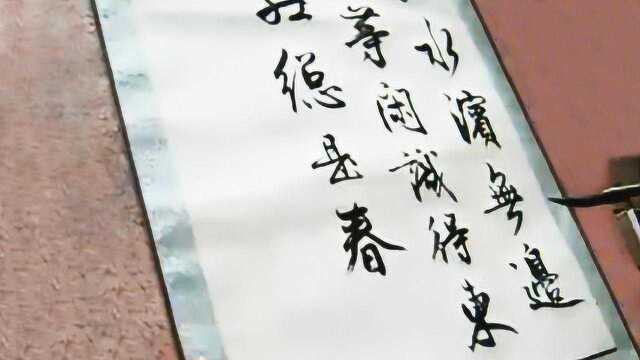 水濱無邊
等閑識得東
紅總是春